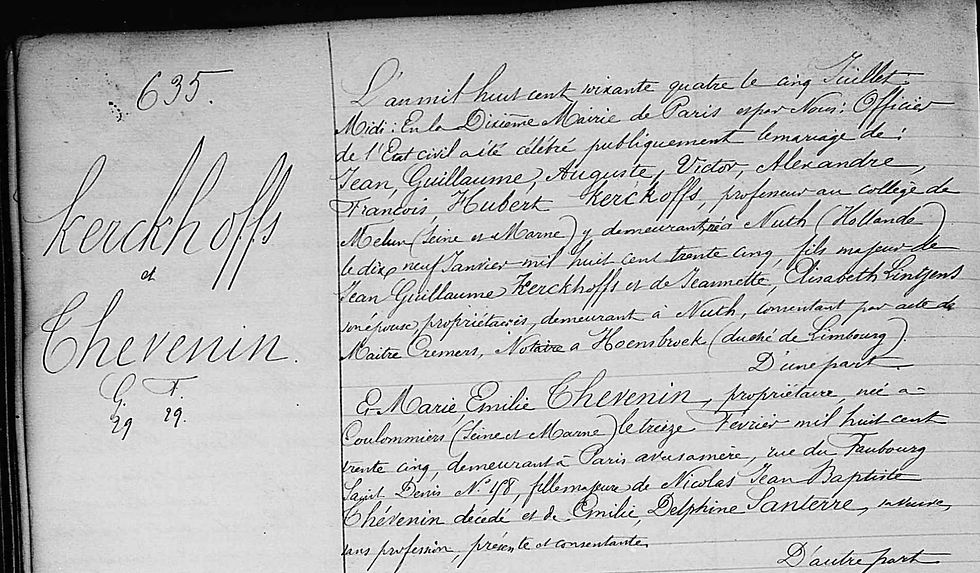 635.
Kerckhoffs
et
Thevenin.
G. F.
29 29.
L'an mil huit cent soixante quatre le cinq Juillet
Midi: En la Dixième Mairie de Paris et par Nous: Officier
de l'Etat civil a été célébré publiquement le mariage de:
Jean, Guillaume, Auguste, Victor, Alexandre,
François, Hubert Kerckhoffs, professeur au collège de
Melun (Seine et Marne) y demeurant, né à Nuth (Hollande)
le dix neuf Janvier mil huit cent trente cinq, fils majeur de
Jean Guillaume Kerckhoffs et de Jeannette, Elisabeth Lintjens
son épouse, propriétaires, demeurant à Nuth, consentant par acte de
Maitre Cremers, Notaire à Hoensbroek (duché de Limbourg)
D'une part.
Et Marie Emilie Thevenin, propriétaire, née à
Coulommiers (Seine et Marne) le treize Février mil huit cent
trente cinq, demeurant à Paris avec sa mère, rue du Faubourg
Saint Denis N° 148, fille majeure de Nicolas Jean Baptiste
Thévenin décédé et de Emilie, Delphine Santerre, sa veuve,
sans profession, présente et consentante,
D'autre part